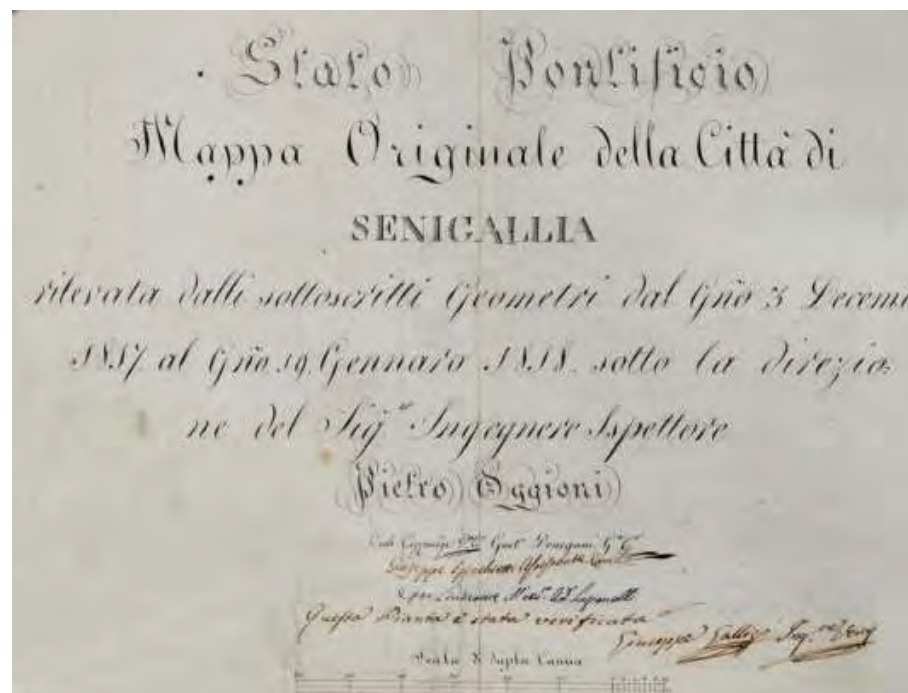 Stato Pontificio
Mappa Originale della Città di
SENIGALLIA
rilevata dalli sottoscritti Geometri dal Gñō 3 Decem
1817 al Gñō 19 Gennaro 1818. sotto la direzio=
ne del Sig.r Ingegnere Ispettore
Pietro Oggioni
Giuseppe
Questa Pianta è stata verificata
Giuseppe Ing.re
Scala di dupla Canna